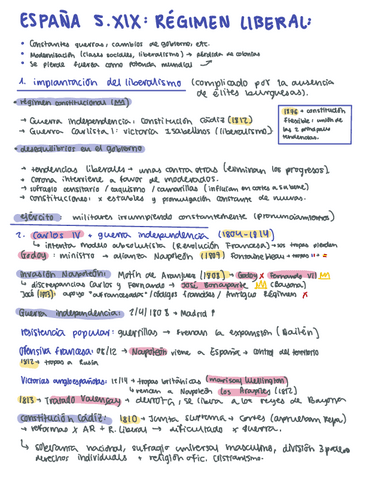 ESPAÑA S.XIX: RÉGIMEN LIBERAL:
• Constantes guerras, cambios de gobierno, etc.
• Modernización (clases sociales, liberalismo) → pérdida de colonias
• Se pierde fuerza como potencia mundial
1. implantación del liberalismo (complicado por la ausencia de élites burguesas).
• régimen constitucional
→ Guerra Independencia: Constitución Cádiz (1812)
→ Guerra Carlista 1: victoria isabelinos (liberalismo)
1876 → constitución flexible: unión de las 2 principales tendencias.
• desequilibrios en el gobierno
→ tendencias liberales → unas contra otras (eliminan los progresos).
→ Corona interviene a favor de moderados.
→ sufragio censitario / caciquismo / camarillas (influían en cortes a su bene)
→ constituciones: x estables y promulgación constante de nuevas.
ejército: militares irrumpiendo constantemente (pronunciamientos)
2. Carlos IV + guerra independencia (1804-1814)
↳ intenta modelo absolutista (Revolución Francesa) →
Godoy: ministro → alianza Napoleón (1807) Fontainebleau →
Invasión Napoleón: Motín de Aranjuez (1808) → Godoy x Fernando VII
↳ discrepancias Carlos y Fernando → José Bonaparte (Bayona)
José (1808): apoyo "afrancesados" / códigos franceses / Antiguo Régimen x
Guerra independencia: 2/4/1808 → Madrid
resistencia popular: guerrillas → frenan la expansión (Bailén)
Ofensiva francesa: 08/12 → Napoleón viene a España → control del territorio
1812 → tropas a Rusia
Victorias angloespañolas: 12/14 → tropas británicas (mariscal Wellington)
↳ vencen a Napoleón los Arapiles (1812)
1813 → Tratado Valençay → derrota, se libera a los reyes de Bayona
Constitución Cádiz: 1810 → Junta Suprema → Cortes (aprueban
→ reformas x AR + R. Liberal → dificultado x guerra.
↳ soberanía nacional, sufragio universal masculino, división 3 poderes
derechos individuales + religión ofic. cristianismo.